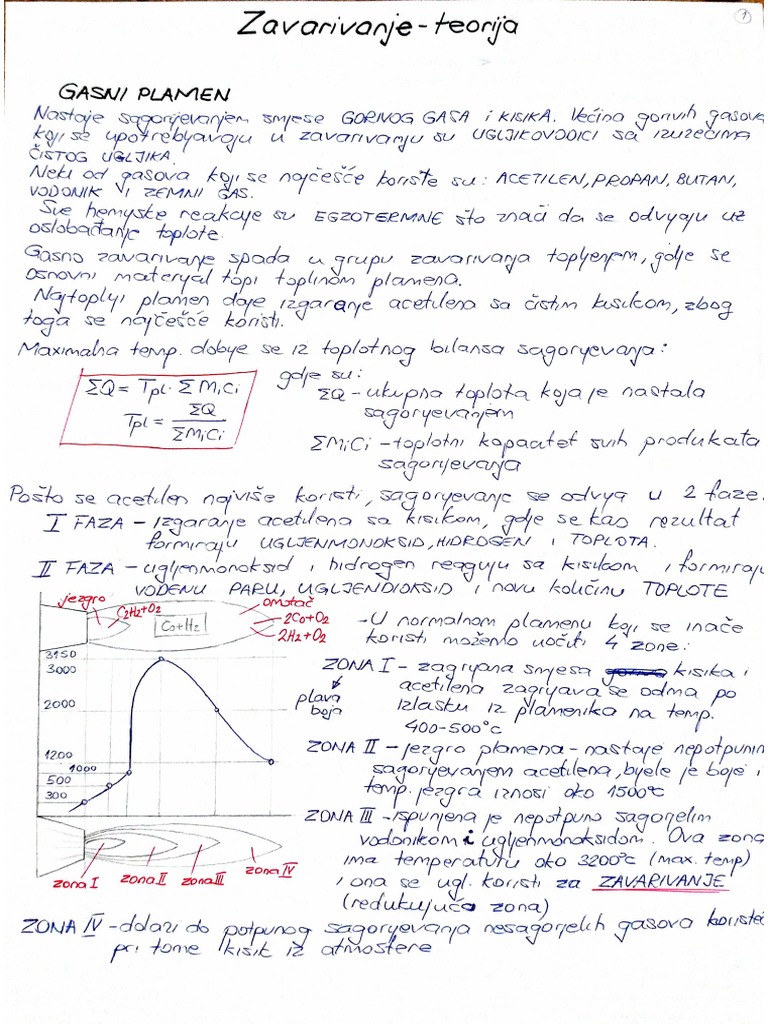 1
Zavarivanje - teorija
GASNI PLAMEN
Nastaje sagorijevanjem smjese GORIVOG GASA i KISIKA. Većina gorivih gasova
koji se upotrebljavaju u zavarivanju su UGLJIKOVODICI sa izuzećima
ČISTOG UGLJIKA.
Neki od gasova koji se najčešće koriste su: ACETILEN, PROPAN, BUTAN,
VODONIK I ZEMNI GAS.
Sve hemijske reakcije su EGZOTERMNE što znači da se odvijaju uz
oslobađanje toplote.
Gasno zavarivanje spada u grupu zavarivanja topljenjem, gdje se
osnovni materijal topi toplinom plamena.
Najtopliji plamen daje izgaranje acetilena sa čistim kisikom, zbog
toga se najčešće koristi.
Maximalna temp. dobije se iz toplotnog bilansa sagorijevanja:
ΣQ = Tpl · ΣMiCi
Tpl = ΣQ / ΣMiCi
gdje su:
ΣQ - ukupna toplota koja je nastala
sagorijevanjem
ΣMiCi - toplotni kapacitet svih produkata
sagorijevanja
Pošto se acetilen najviše koristi, sagorijevanje se odvija u 2 faze.
I FAZA - izgaranje acetilena sa kisikom, gdje se kao rezultat
formiraju UGLJENMONOKSID, HIDROGEN i TOPLOTA.
II FAZA - ugljenmonoksid i hidrogen reaguju sa kisikom i formiraju
VODENU PARU, UGLJENDIOKSID i novu količinu TOPLOTE
jezgro
C2H2+O2
Co+H2
omotač
2Co+O2
2H2+O2
3150
3000
2000
1200
1000
500
300
- U normalnom plamenu koji se inače
koristi možemo uočiti 4 zone:
ZONA I - zagrijana smjesa kisika i
acetilena zagrijava se odma po
izlasku iz plamenika na temp.
400-500°C
plava
boja
ZONA II - jezgro plamena - nastaje nepotpunim
sagorijevanjem acetilena, bijele je boje i
temp. jezgra iznosi oko 1500°C
ZONA III - ispunjena je nepotpuno sagorjelim
vodonikom i ugljenmonoksidom. Ova zona
ima temperaturu oko 3200°C (max. temp)
i ona se ugl. koristi za ZAVARIVANJE
(redukujuća zona)
zona I
zona II
zona III
zona IV
ZONA IV - dolazi do potpunog sagorijevanja nesagorjelih gasova koristeć
pri tome kisik iz atmosfere